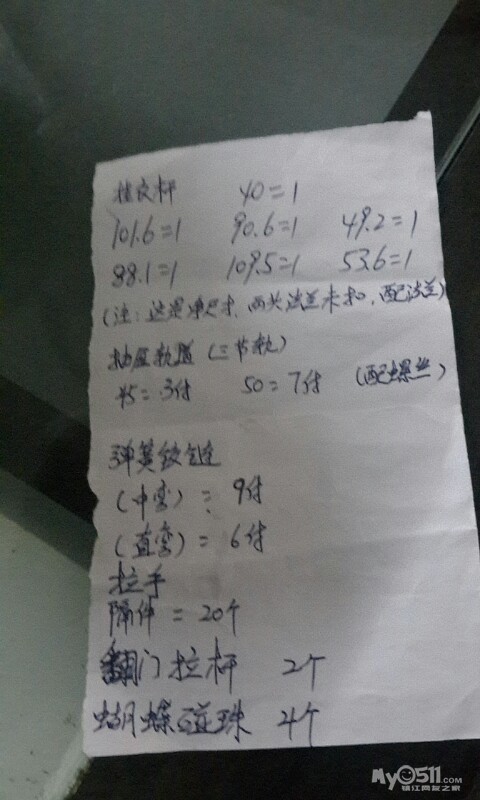 挂衣杆 40=1
101.6=1 90.6=1 49.2=1
88.1=1 109.5=1 53.6=1
(注:这是净尺寸,两头法兰未扣,配法兰)
抽屉轨道(三节轨)
45=3付 50=7付 (配螺丝)
弹簧铰链
(中弯)=9付
(直弯)=6付
拉手
隔件=20个
翻门拉杆 2个
蝴蝶碰珠 4个
My0511.COM
镇江网友之家